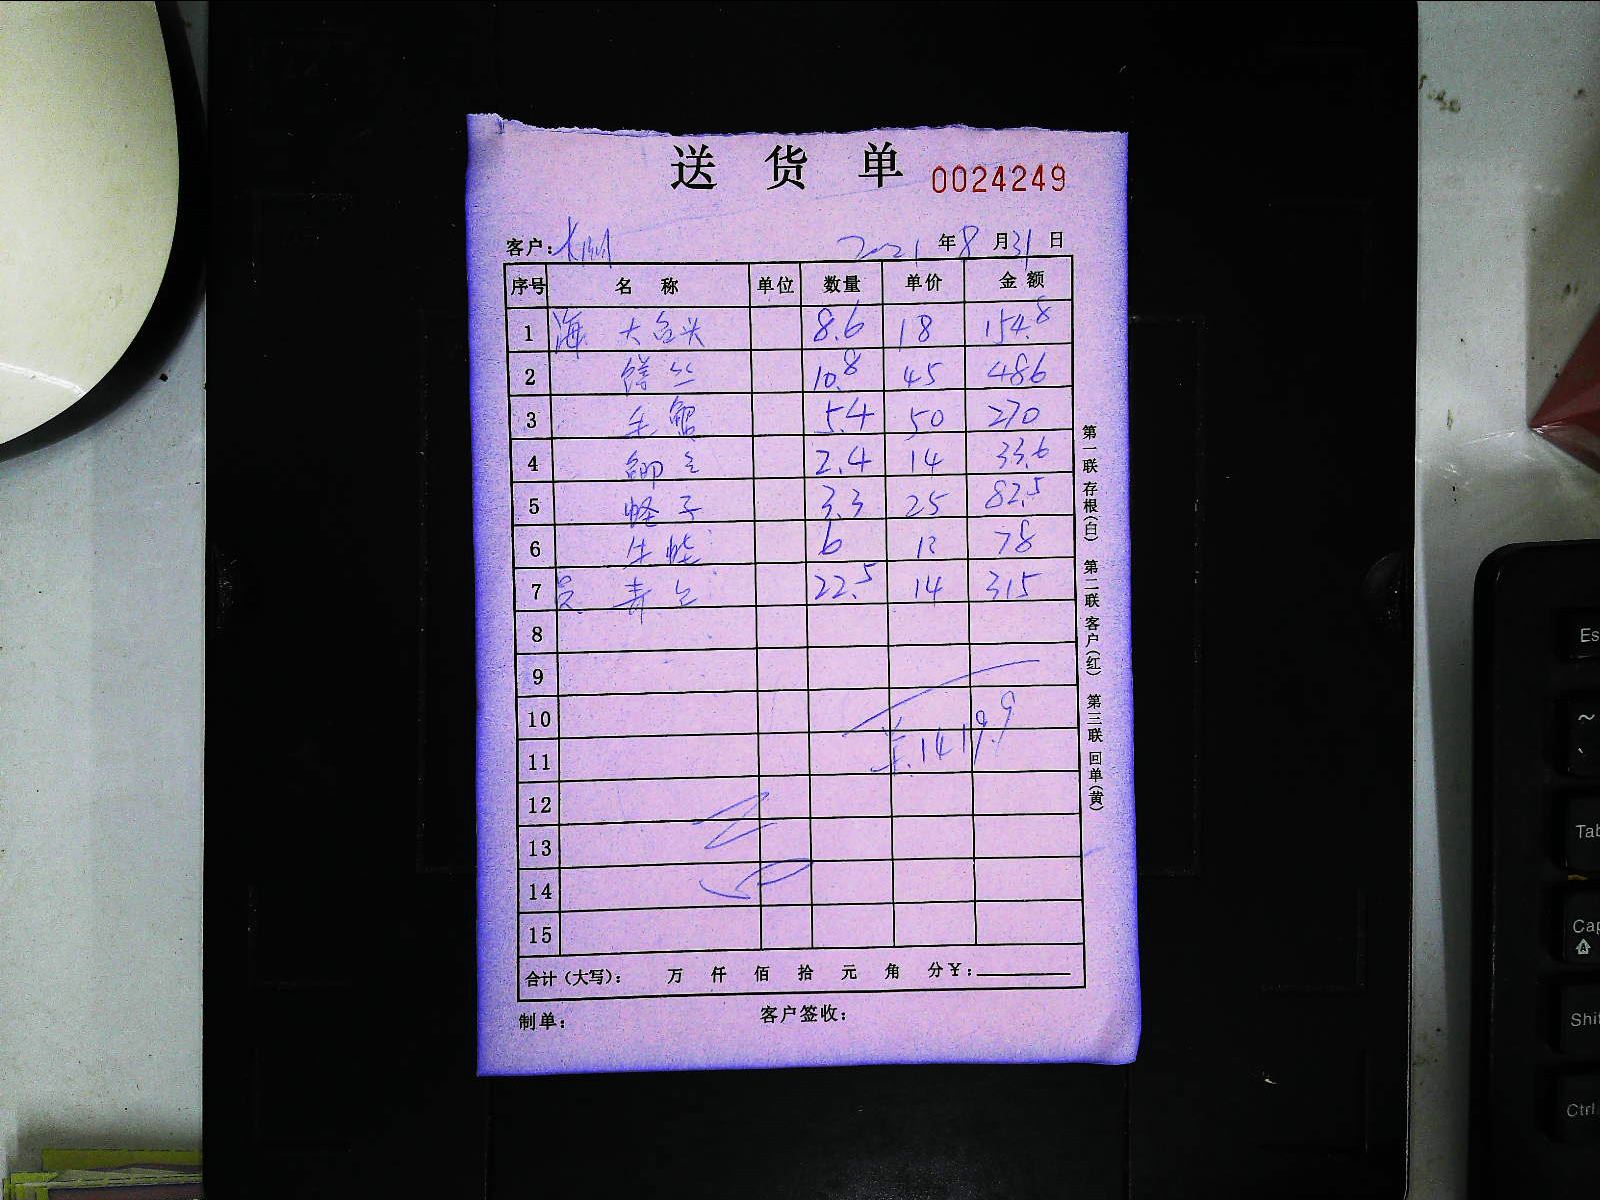 送货单 0024249
客户: 2021年8月31日
序号 名称 单位 数量 单价 金额
1 海 大 头 8.6 18 154.8
2 丝 10.8 45 486
3 5.4 50 270
4 2.4 14 33.6
5 蛏子 3.3 25 82.5
6 6 13 78
7 22.5 14 315
8
9
10
11 1419.9
12
13
14
15
合计(大写): 万 仟 佰 拾 元 角 分 ¥:
制单: 客户签收:
第一联 存根(白) 第二联 客户(红) 第三联 回单(黄)
Es
~
`
Tab
Cap
Shi
Ctrl